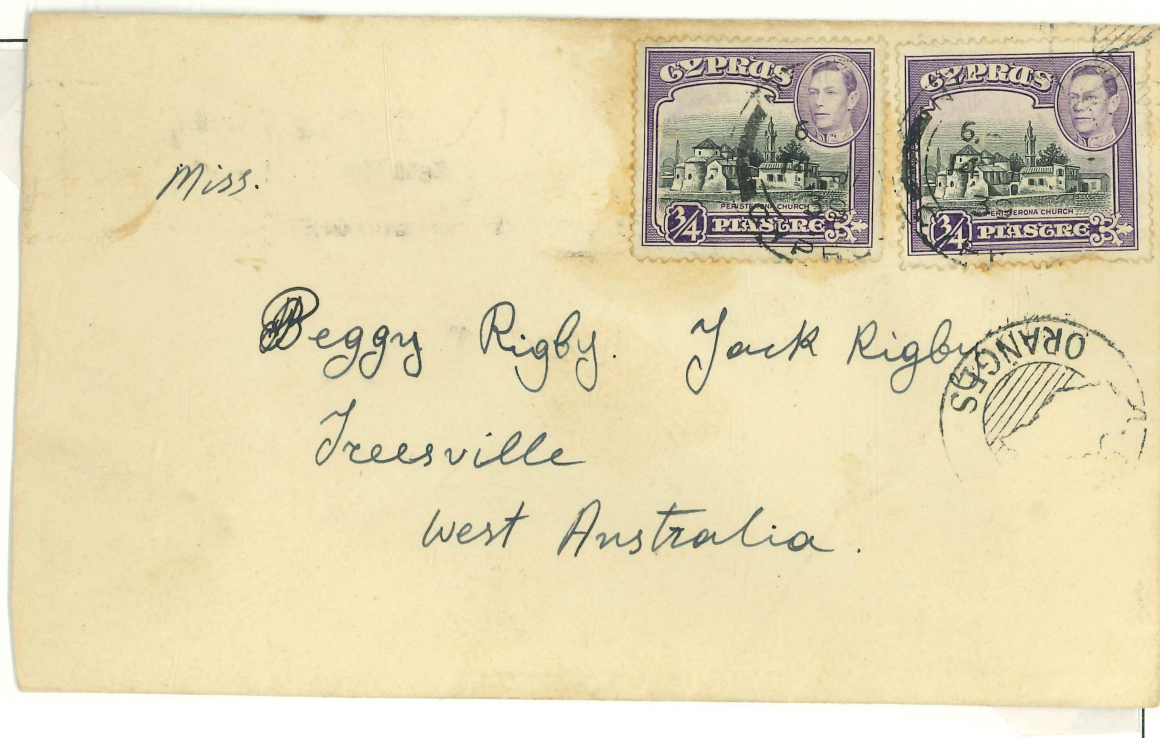 CYPRUS
PERISTERONA CHURCH
3/4 PIASTRE
CYPRUS
PERISTERONA CHURCH
3/4 PIASTRE
Miss.
Peggy Rigby. Jack Rigby
Treesville
West Australia.
ORANGES